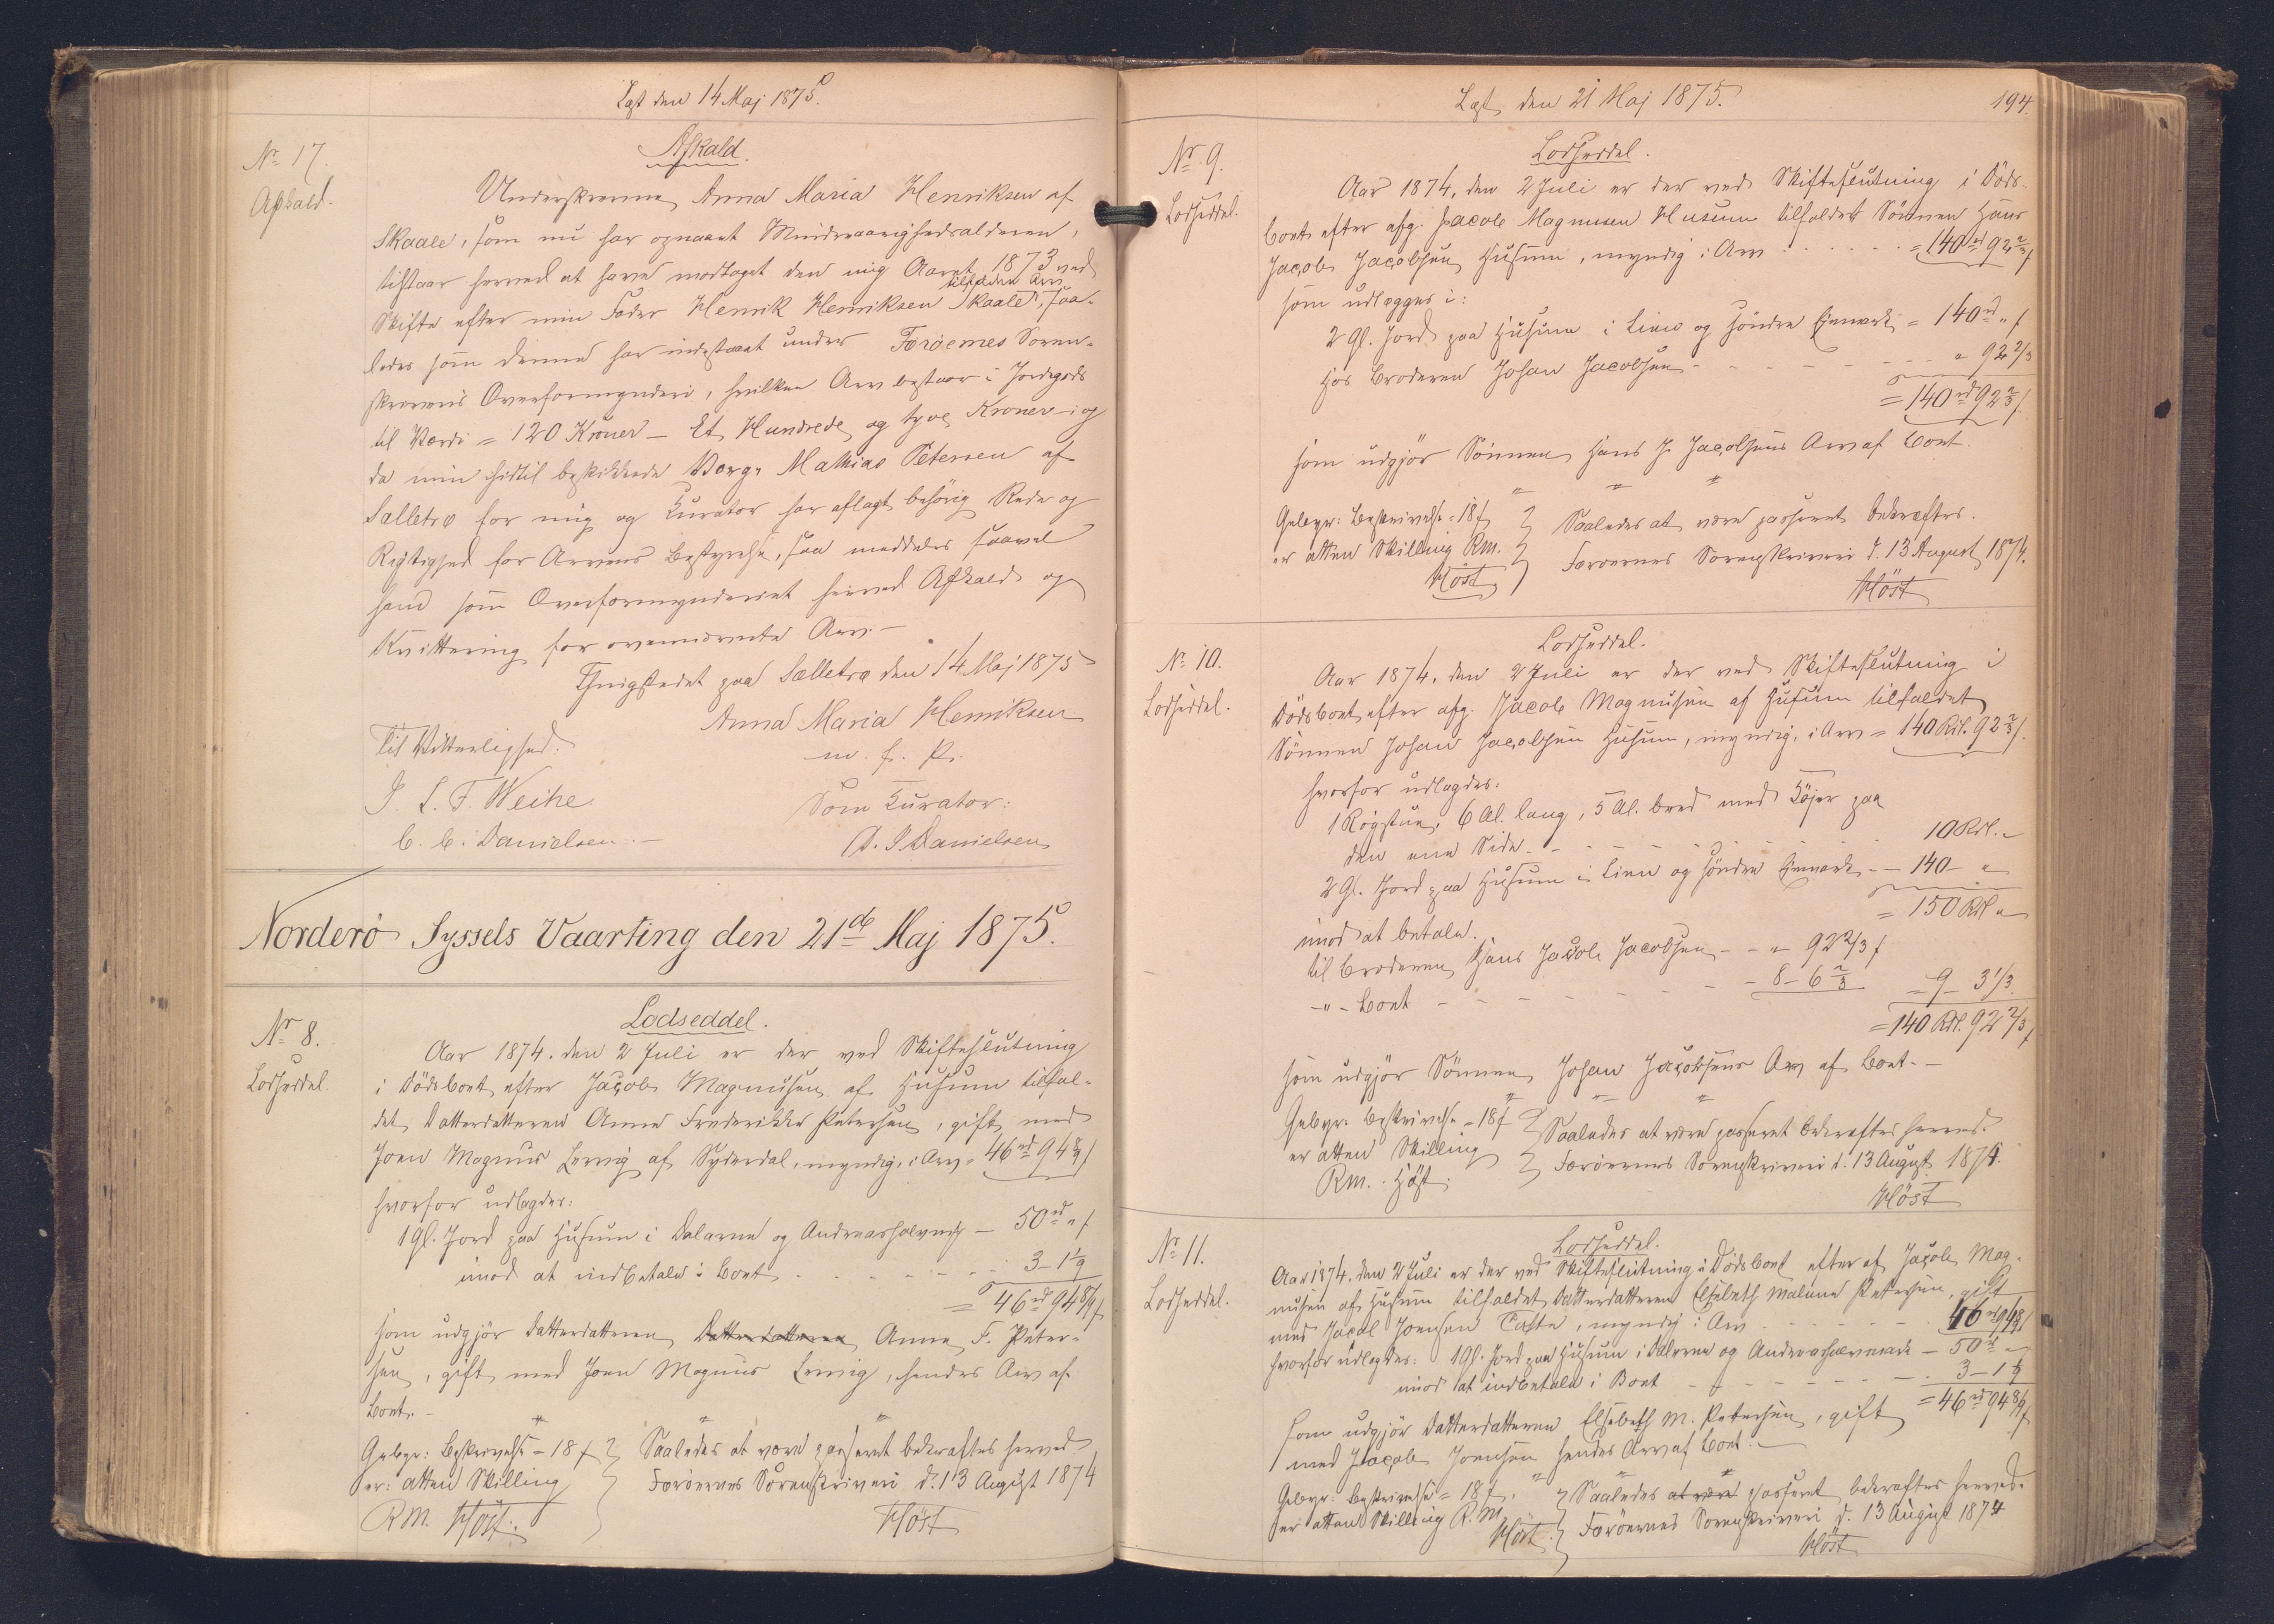 Lgt den 14 Maj 1875.
Nr 17.
Afkald.
Afkald.
Underskrevne, Anna Maria Henriksen af
Skaale, som nu har opnaaet Mindreaarighedsalderen,
tilstaar herved at have modtaget den mig Aaret 1873 ved
tilfaldne Arv
Skifte efter min Fader Henrik Henriksen Skaale, saa-
ledes som denne har indestaaet under Færøernes Soren-
skriveris Overformynderi, hvilken Arv bestaar i Jordegods
til Værdi = 120 Kroner – Et Hundrede og tyve Kroner – og
da min hidtil beskikkede Værge Mathias Petersen af
Sælletræ for mig og Kurator har aflagt behørig Rede og
Rigtighed for Arvens Bestyrelse, saa meddeles saavel
ham som Overformynderiet herved Afkald og
Kvittering for ovennævnte Arv. –
Thingstedet paa Sælletræ den 14 Maj 1875
Anna Maria Henriksen
m. f. P.
Til Vitterlighed:
J. L. F. Weihe
C. C. Danielsen. –
Som Kurator:
D. J. Danielsen
Norderø Syssels Vaarting den 21de Maj 1875.
Nr 8.
Lodseddel.
Lodseddel.
Aar 1874. den 2 Juli er der ved Skifteslutning
i Dödsboet efter Jacob Magnusen af Husum tilfal-
det Datterdatteren Anna Frederikke Petersen, gift med
Joen Magnus Lervig af Syderdal, myndig, i Arv = 46 rd 94 8/9 ſ
hvorfor udlagdes:
1 Gl. Jord paa Husum i Dalarne og Andreashalvmark – 50 rd „ ſ
imod at indbetale i Boet – – – – – 3 – 1 1/9
= 46 rd 94 8/9 ſ
som udgjör Datterdatteren Datterdatteren Anna F. Peter-
sen, gift med Joen Magnus Lervig, hendes Arv af
Boet. –
Gebyr: Beskrivelse = 18 ſ
er: atten Skilling
RM. Höst.
Saaledes at være passeret bekræftes herved
Færöernes Sorenskriveri d. 13 August 1874
Höst
Lgt den 21 Maj 1875.
194.
Nr. 9.
Lodseddel.
Lodseddel.
Aar 1874, den 2 Juli er der ved Skifteslutning i Döds-
boet efter afg. Jacob Magnusen Husum tilfaldet Sönnen Hans
Jacob Jacobsen Husum, myndig i Arv . . . . = 140 rd 92 2/3 ſ
som udlægges i:
2 Gl. Jord paa Husum i Lien og söndre Eimark = 140 rd „ ſ
hos Broderen Johan Jacobsen – – – – – „ 92 2/3
= 140 rd 92 2/3 ſ
som udgjör Sönnen Hans J. Jacobsens Arv af Boet.
Gebyr: Beskrivelse = 18 ſ
er atten Skilling Rm.
Höst
Saaledes at være passeret bekræftes.
Færoernes Sorenskriveri d. 13 August 1874.
Höst
Nr 10.
Lodseddel.
Lodseddel.
Aar 1874. den 2 Juli er der ved Skifteslutning i
Dödsboet efter afg. Jacob Magnusen af Husum tilfaldet
Sönnen Johan Jacobsen Husum, myndig, i Arv = 140 Rdl. 92 2/3 ſ.
hvorfor udlagdes:
1 Rögstue, 6 Al. lang, 5 Al. bred med Köjer paa
den ene Side – – – – – 10 Rdl. „
2 Gl. Jord paa Husum i Lien og söndre Eimark – – 140 – „
= 150 Rdl „
imod at betale.
til Broderen Hans Jacob Jacobsen – – „ 92 2/3 ſ
– „ – Boet – – – – – – 8 – 6 2/3 = 9 – 3 1/3
= 140 Rdl. 92 2/3 ſ
som udgjör Sönnen Johan Jacobsens Arv af Boet. –
Gebyr: Beskrivelse = 18 ſ
er atten Skilling
Rm. Höst.
Saaledes at være passeret bekræftes herved.
Færöernes Sorenskriveri d. 13 August 1874.
Höst
Nr 11.
Lodseddel.
Lodseddel.
Aar 1874. den 2 Juli er der ved Skifteslutning i Dödsboet efter af Jacob Mag-
nusen af Husum tilfaldet Datterdatteren Elsebeth Malene Petersen, gift
med Jacob Joensen Tofte, myndig i Arv . . . . 46 rd 94 8/9 ſ
hvorfor udlagdes: 1 Gl. Jord paa Husum i Dalarne og Andreashalvmark – 50 rd „
imod at indbetale i Boet – – – – – 3 – 1 1/9
= 46 rd 94 8/9 ſ
som udgjör Datterdatteren Elsebeth M. Petersen, gift
med Jacob Joensen hendes Arv af Boet. –
Gebyr: Beskrivelse = 18 ſ.
er atten Skilling R. M.
Höst.
Saaledes at være passeret bekræftes herved.
Færöernes Sorenskriveri d. 13 August 1874
Höst